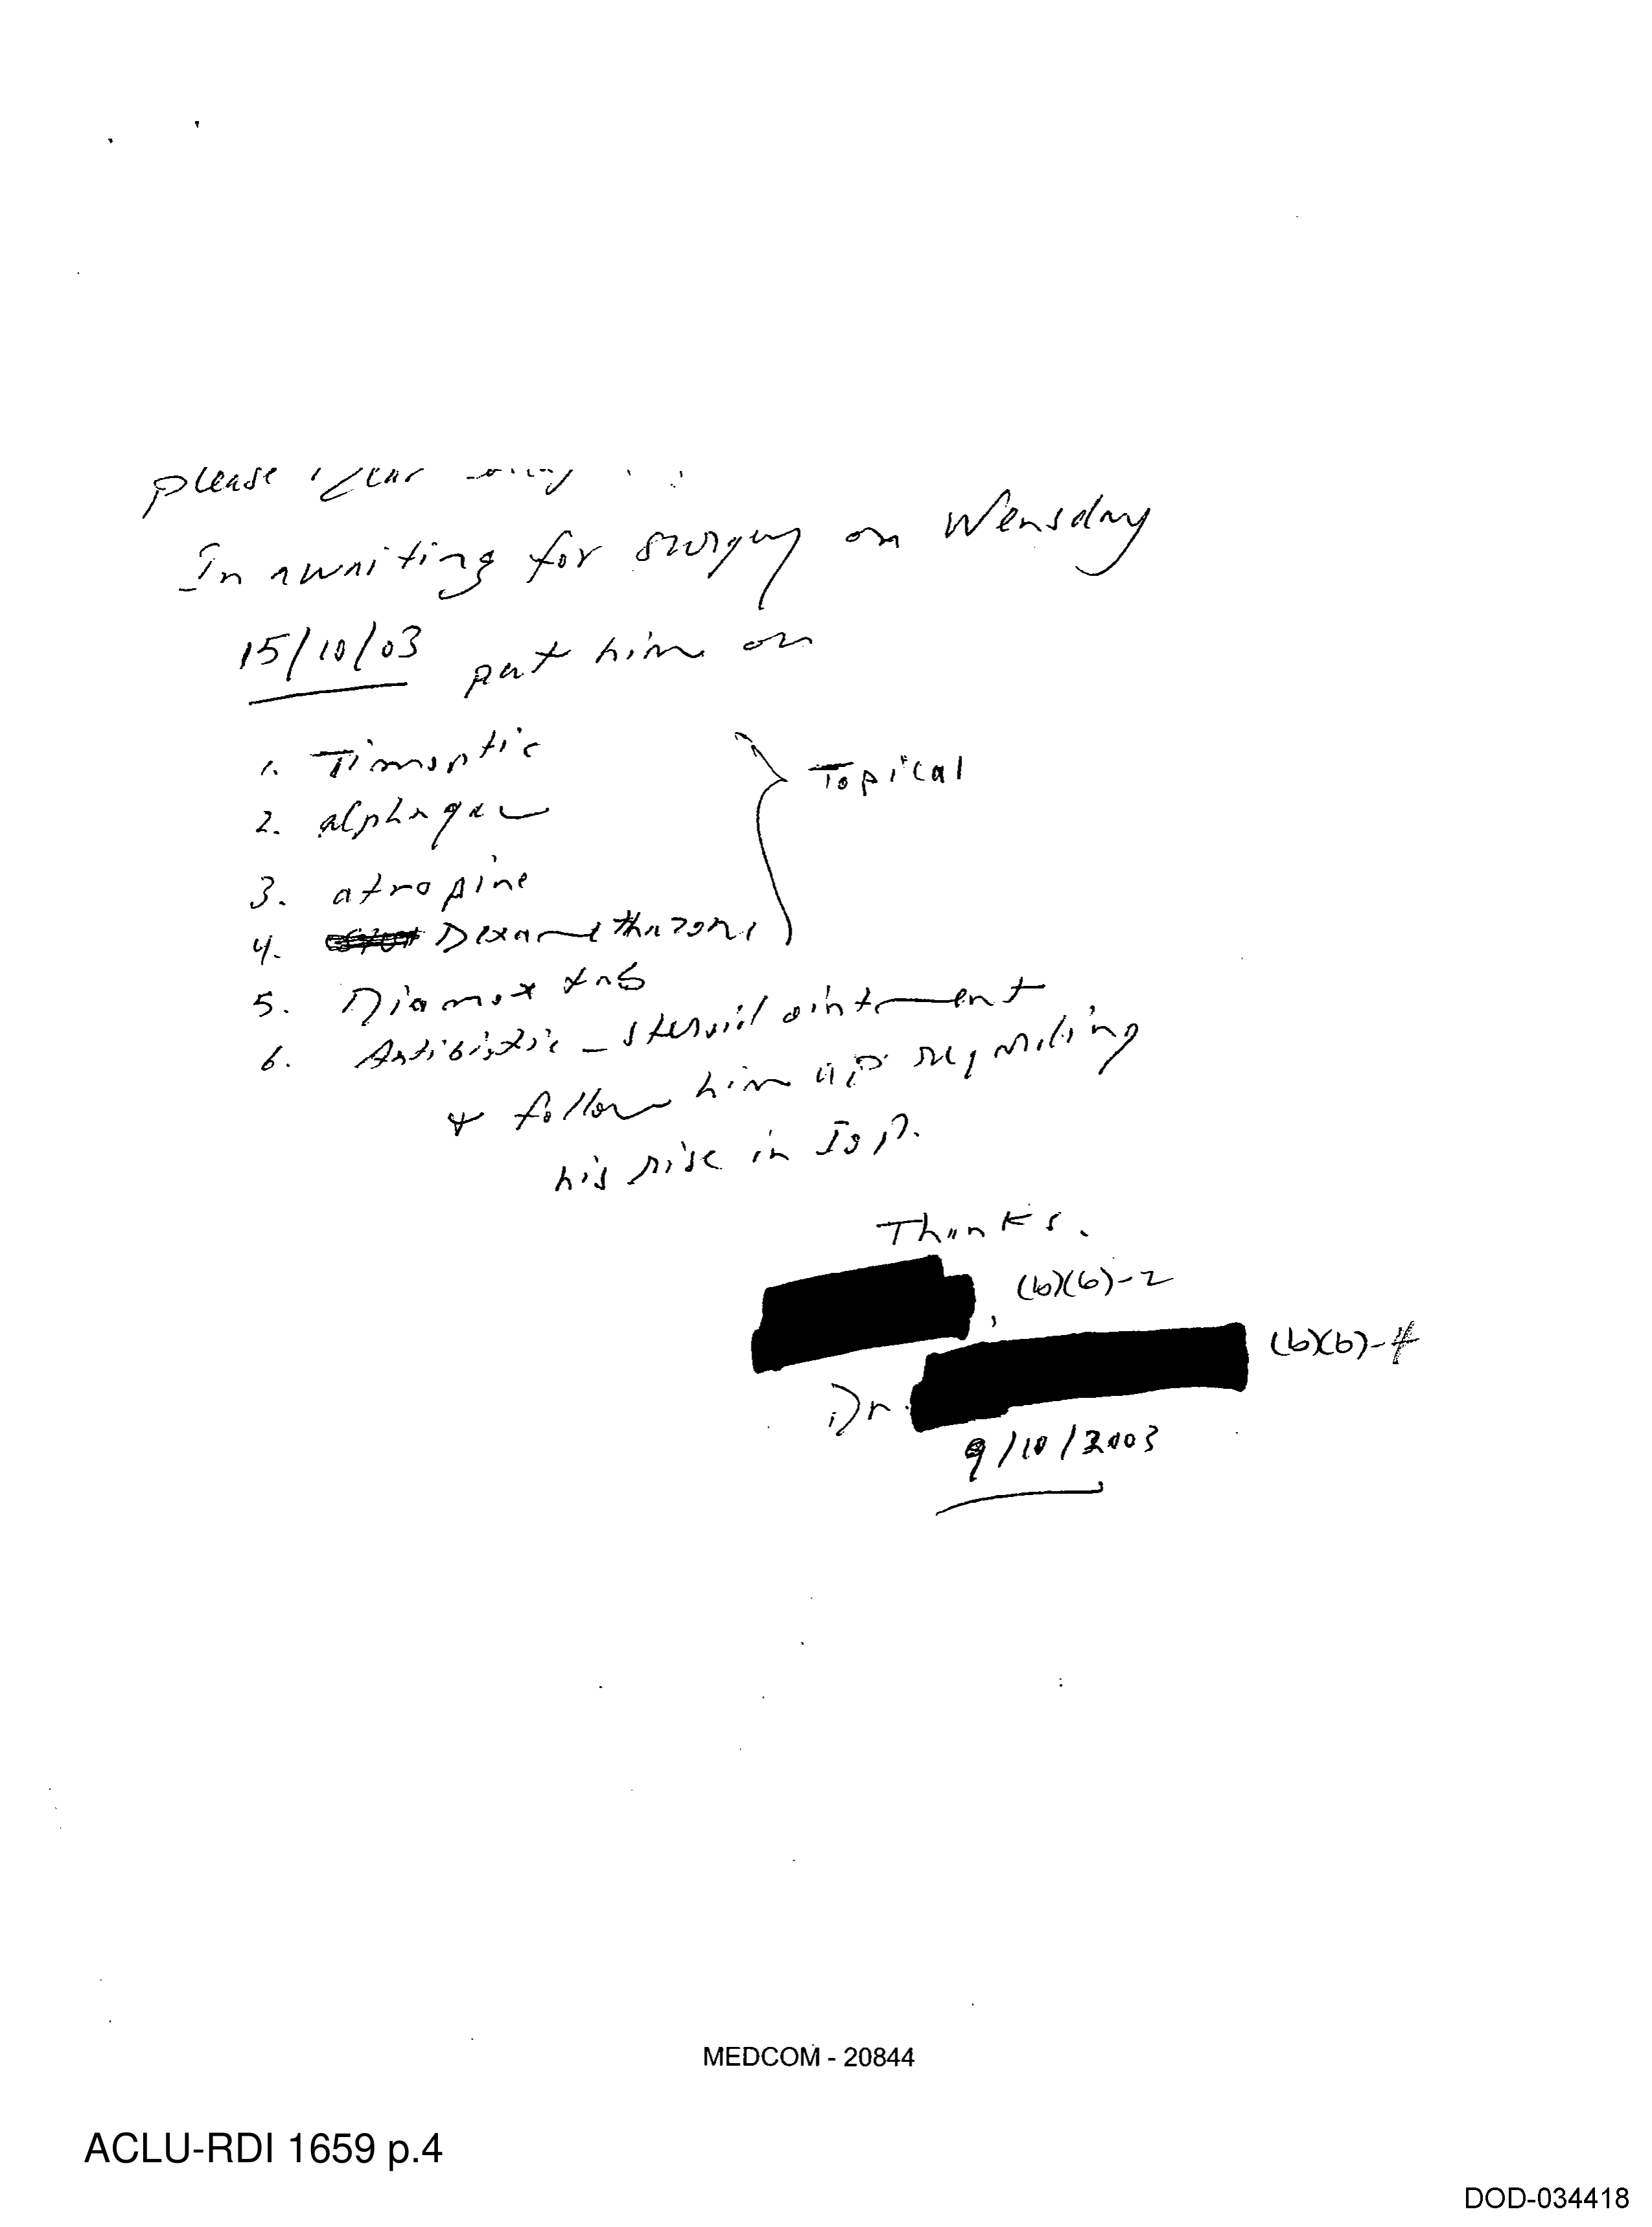 please
In awaiting for surgery on Wensday
15/10/03 put him on
1. Timoptic
2. alphagan
3. atropine
4. Dexamethazone
Topical
5. Diamox tab
6. Antibiotic - steroid ointment
& follow him up regarding
his rise in IOP.
Thanks.
(b)(6)-2
(b)(6)-4
Dr.
9/10/2003
MEDCOM - 20844
ACLU-RDI 1659 p.4
DOD-034418